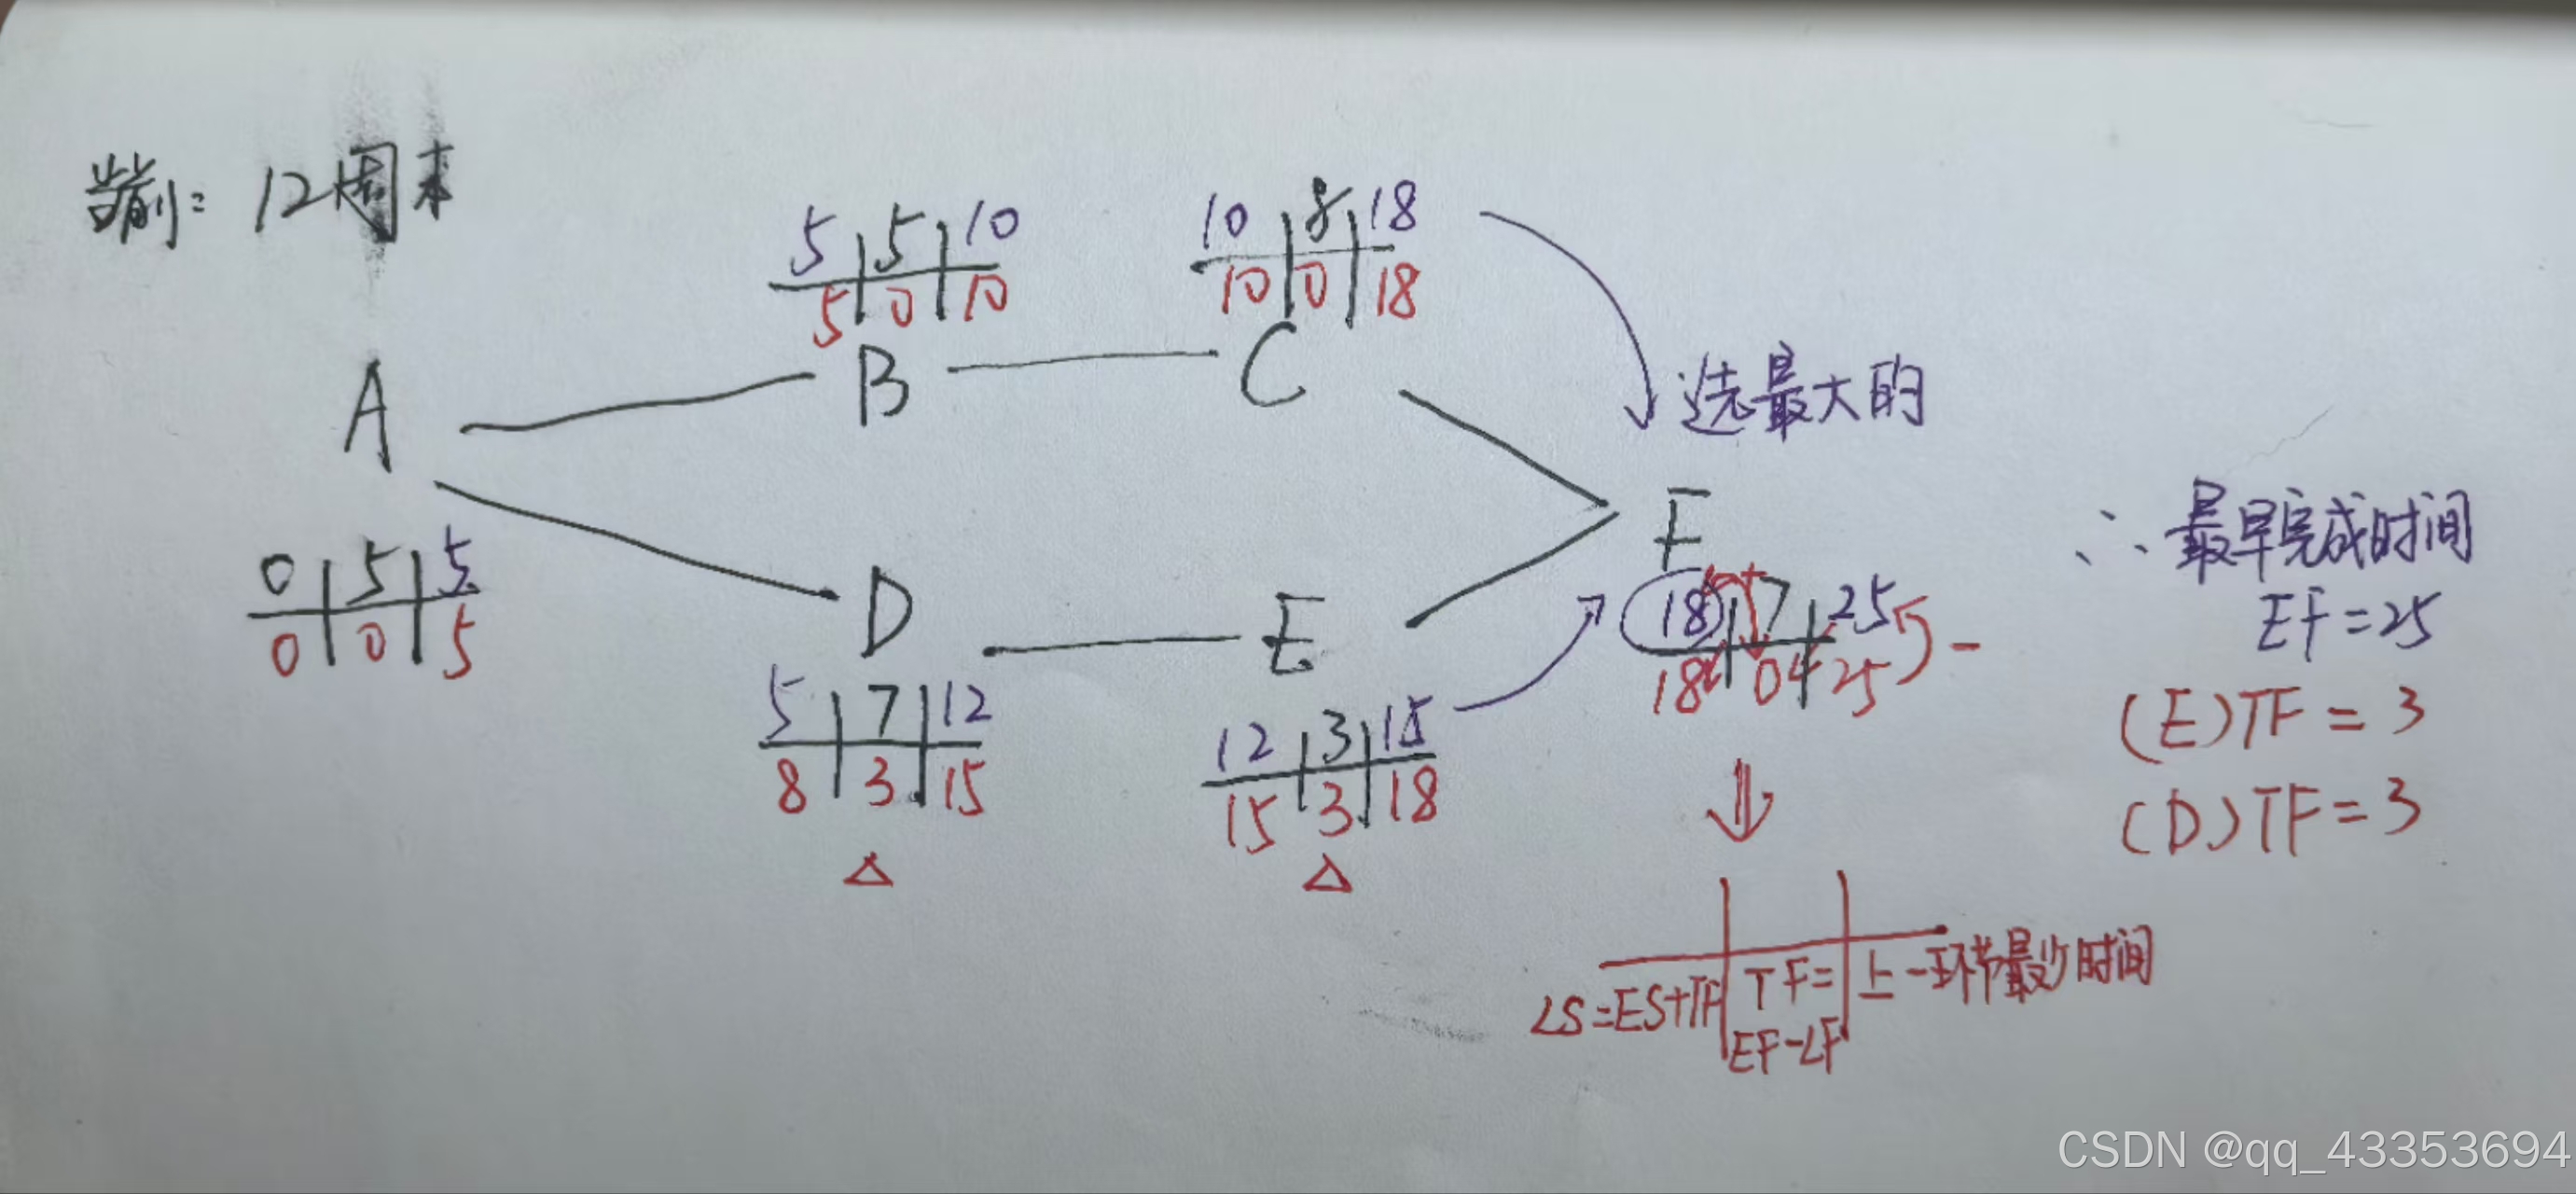 当前：12周末
5 5 10
5 0 10
10 8 18
10 0 18
A
B
C
选最大的
0 5 5
0 0 5
D
E
F
5 7 12
8 3 15
12 3 15
15 3 18
+
18 7 25
18 0 25
-
∴ 最早完成时间
EF=25
(E)TF=3
(D)TF=3
△
△
LS=ES+TF
TF=
EF-LF
上一环节最少时间
CSDN @qq_43353694